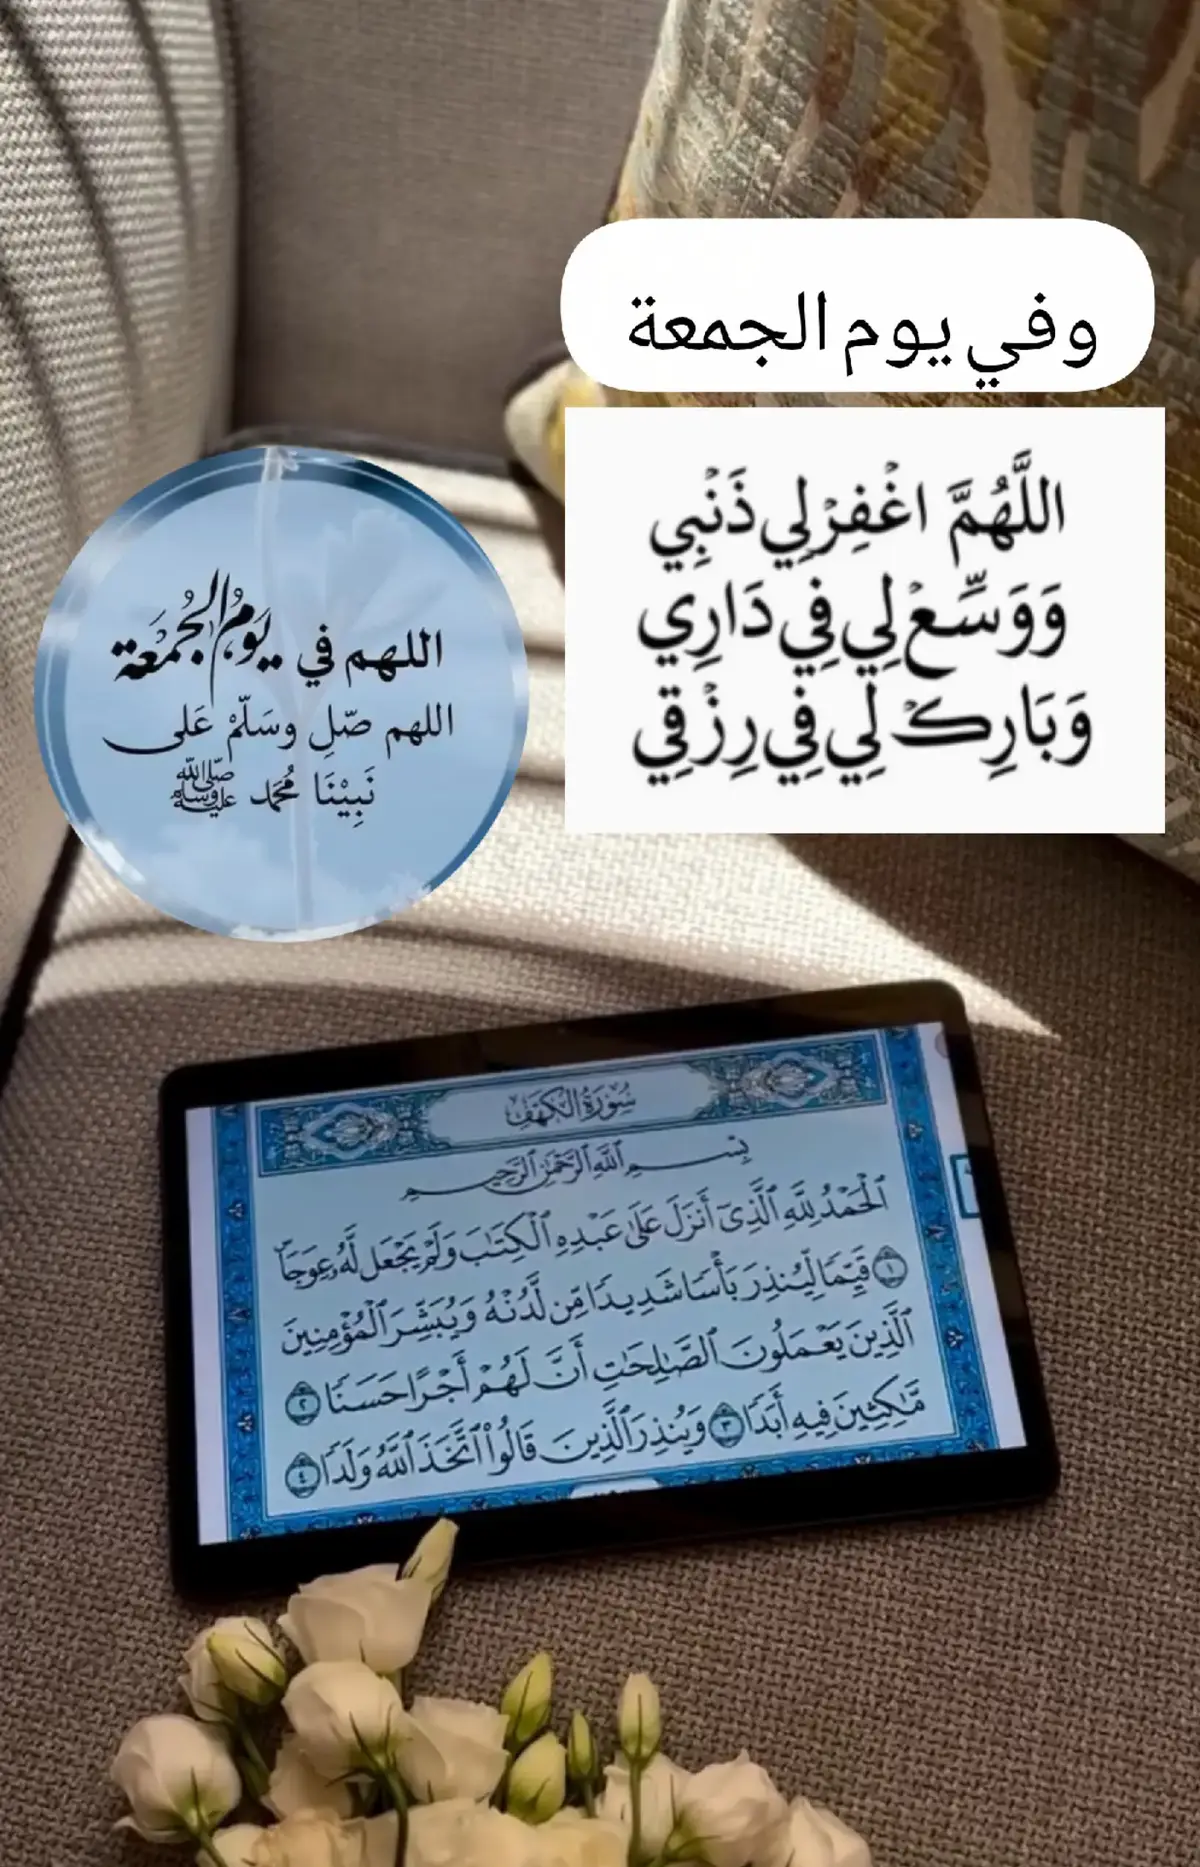 وفي يوم الجمعة
اللَّهُمَّ اغْفِرْ لِي ذَنْبِي
وَوَسِّعْ لِي فِي دَارِي
وَبَارِكْ لِي فِي رِزْقِي
اللهم في يَومُ الجُمْعَة
اللهم صّلِ وسَلّمْ عَلى
نَبِيْنَا مُحَمَد ﷺ
سُورَةُ الكَهْفِ
بِسْمِ ٱللَّهِ ٱلرَّحْمَٰنِ ٱلرَّحِيمِ
ٱلْحَمْدُ لِلَّهِ ٱلَّذِىٓ أَنزَلَ عَلَىٰ عَبْدِهِ ٱلْكِتَٰبَ وَلَمْ يَجْعَل لَّهُۥ عِوَجَاۜ
١ قَيِّمًا لِّيُنذِرَ بَأْسًا شَدِيدًا مِّن لَّدُنْهُ وَيُبَشِّرَ ٱلْمُؤْمِنِينَ
ٱلَّذِينَ يَعْمَلُونَ ٱلصَّٰلِحَٰتِ أَنَّ لَهُمْ أَجْرًا حَسَنًا ٢
مَّٰكِثِينَ فِيهِ أَبَدًا ٣ وَيُنذِرَ ٱلَّذِينَ قَالُوا۟ ٱتَّخَذَ ٱللَّهُ وَلَدًا ٤